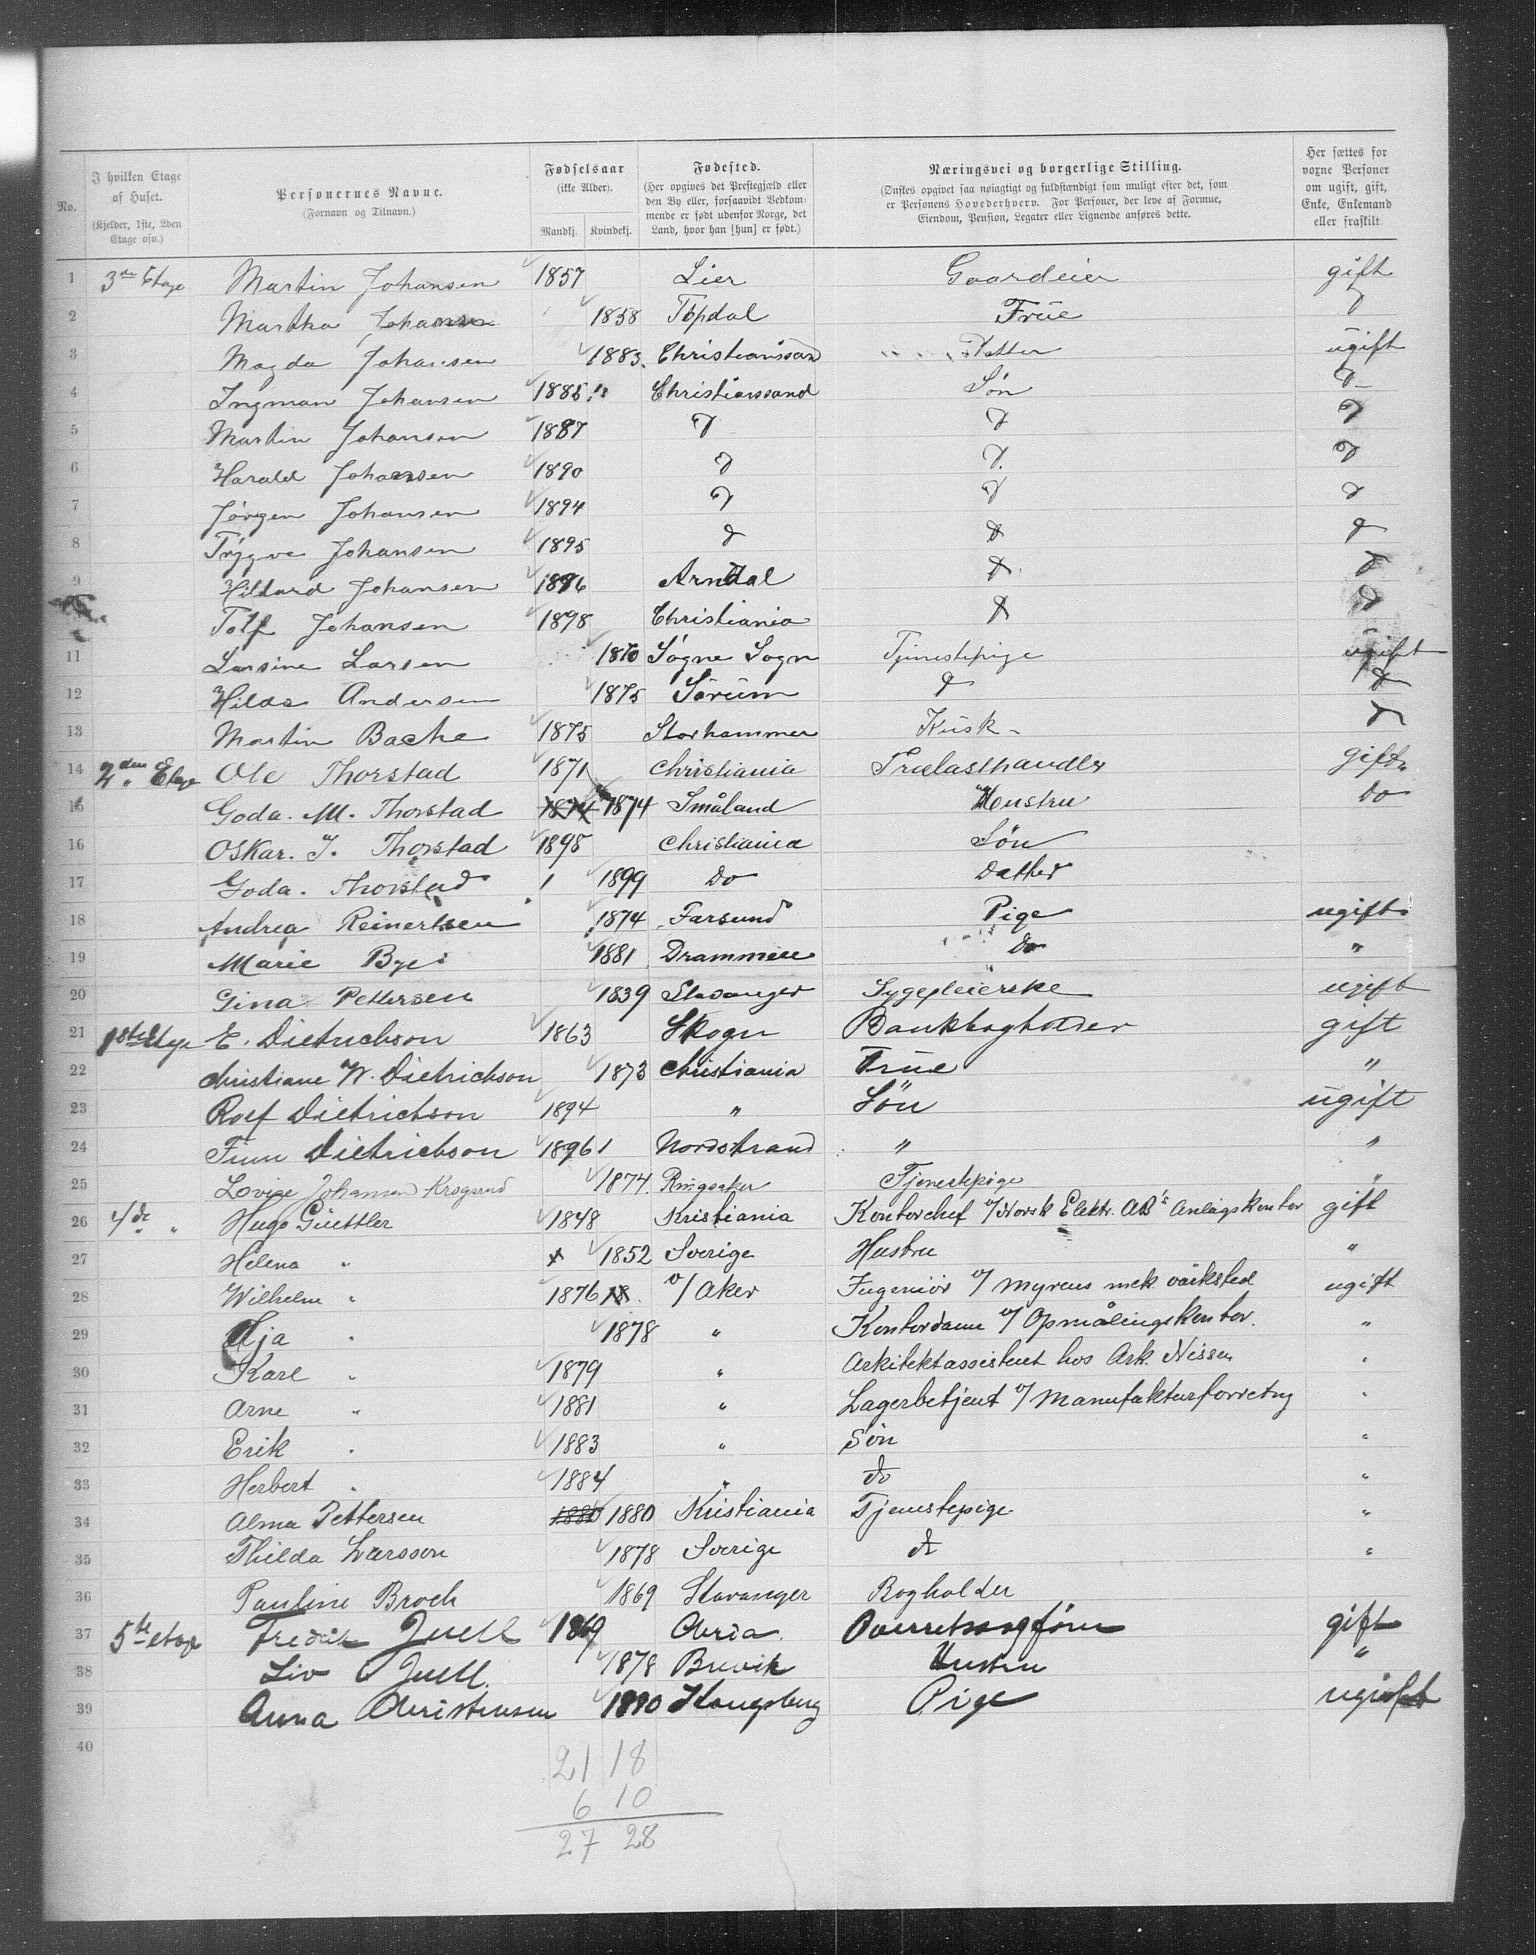 No. | I hvilken Etage af Huset. (Kjelder, 1ste, 2den Etage osv.) | Personernes Navne. (Fornavn og Tilnavn.) | Fødselsaar (ikke Alder). Mandkj. Kvindekj. | Fødested. (Her opgives det Prestegjæld eller den By eller, forsaavidt Vedkommende er født udenfor Norge, det Land, hvor han [hun] er født.) | Næringsvei og borgerlige Stilling. (Ønskes opgivet saa nøiagtigt og fuldstændigt som muligt efter det, som er Personens Hovederhverv. For Personer, der leve af Formue, Eiendom, Pension, Legater eller Lignende anføres dette. | Her sættes for vorne Personer om ugift, gift, Enke, Enkemand eller fraskilt.
1 3die Etage Martin Johansen 1857 Lier Gaardeier gift
2 Martha Johansen 1858 Topdal Frue d
3 Magda Johansen 1883 Christianssand Datter ugift
4 Ingman Johansen 1885 Christianssand Søn d
5 Martin Johansen 1887 d d d
6 Harald Johansen 1890 d d d
7 Jørgen Johansen 1894 d d d
8 Trygve Johansen 1895 d d d
9 Hillard Johansen 1896 Arndal d d
Tolf Johansen 1898 Christiania d d
11 Larsine Larsen 1870 Søgne Sogn Tjenestepige ugift
12 Hilda Andersen 1875 Sørum d d
13 Martin Bache 1875 Storhammer Kusk d
14 2den Etage Ole Thorstad 1871 Christiania Trælasthandler gift
15 Goda. M. Thorstad 1874 1874 Småland Honstru Do
16 Oskar. J. Thorstad 1898 Christiania Søn
17 Goda. Thorstad 1899 Do Datter
18 Andrea Reinertsen 1874 Farsund Pige ugift
19 Marie Bye 1881 Drammen Do "
20 Gina Pettersen 1839 Stavanger Sygepleierske ugift
21 1ste Etage E. Dietrichson 1863 Skogn Bankbogholder gift
22 Christiane W. Dietrichson 1873 Christiania Frue "
23 Rolf Dietrichson 1894 " Søn ugift
24 Finn Dietrichson 1896 Nordstrand " "
25 Lovise Johansen Krogsrud 1874 Ringsaker Tjenestepige "
26 4de " Hugo Güettler 1848 Kristiania Kontorchef v/ Norsk Elektr. AB's Anlægskontor gift
27 Helena " 1852 Sverige Hustru "
28 Wilhelm " 1876 v/ Aker Ingeniör v/ Myrens mek. värksted ugift
29 Aja " 1878 " Kontordame v/ Opmålingskontor. "
30 Karl " 1879 " Arkitektassistent hos Ark. Nissen "
31 Arne " 1881 " Lagerbetjent v/ Manufakturforretng "
32 Erik " 1883 " Søn "
33 Herbert " 1884 " do "
34 Alma Pettersen 1880 1880 Kristiania Tjenestepige "
35 Thilda Larsson 1878 Sverige do "
36 Pauline Broch 1869 Stavanger Bogholder
37 5te etage Fredrik Juell 1869 Chria. Overretssagfører gift
38 Liv Juell. 1878 Brevik Hustru "
39 Anna Christensen 1880 Kongsberg Pige ugift
40
21 18
6 10
27 28